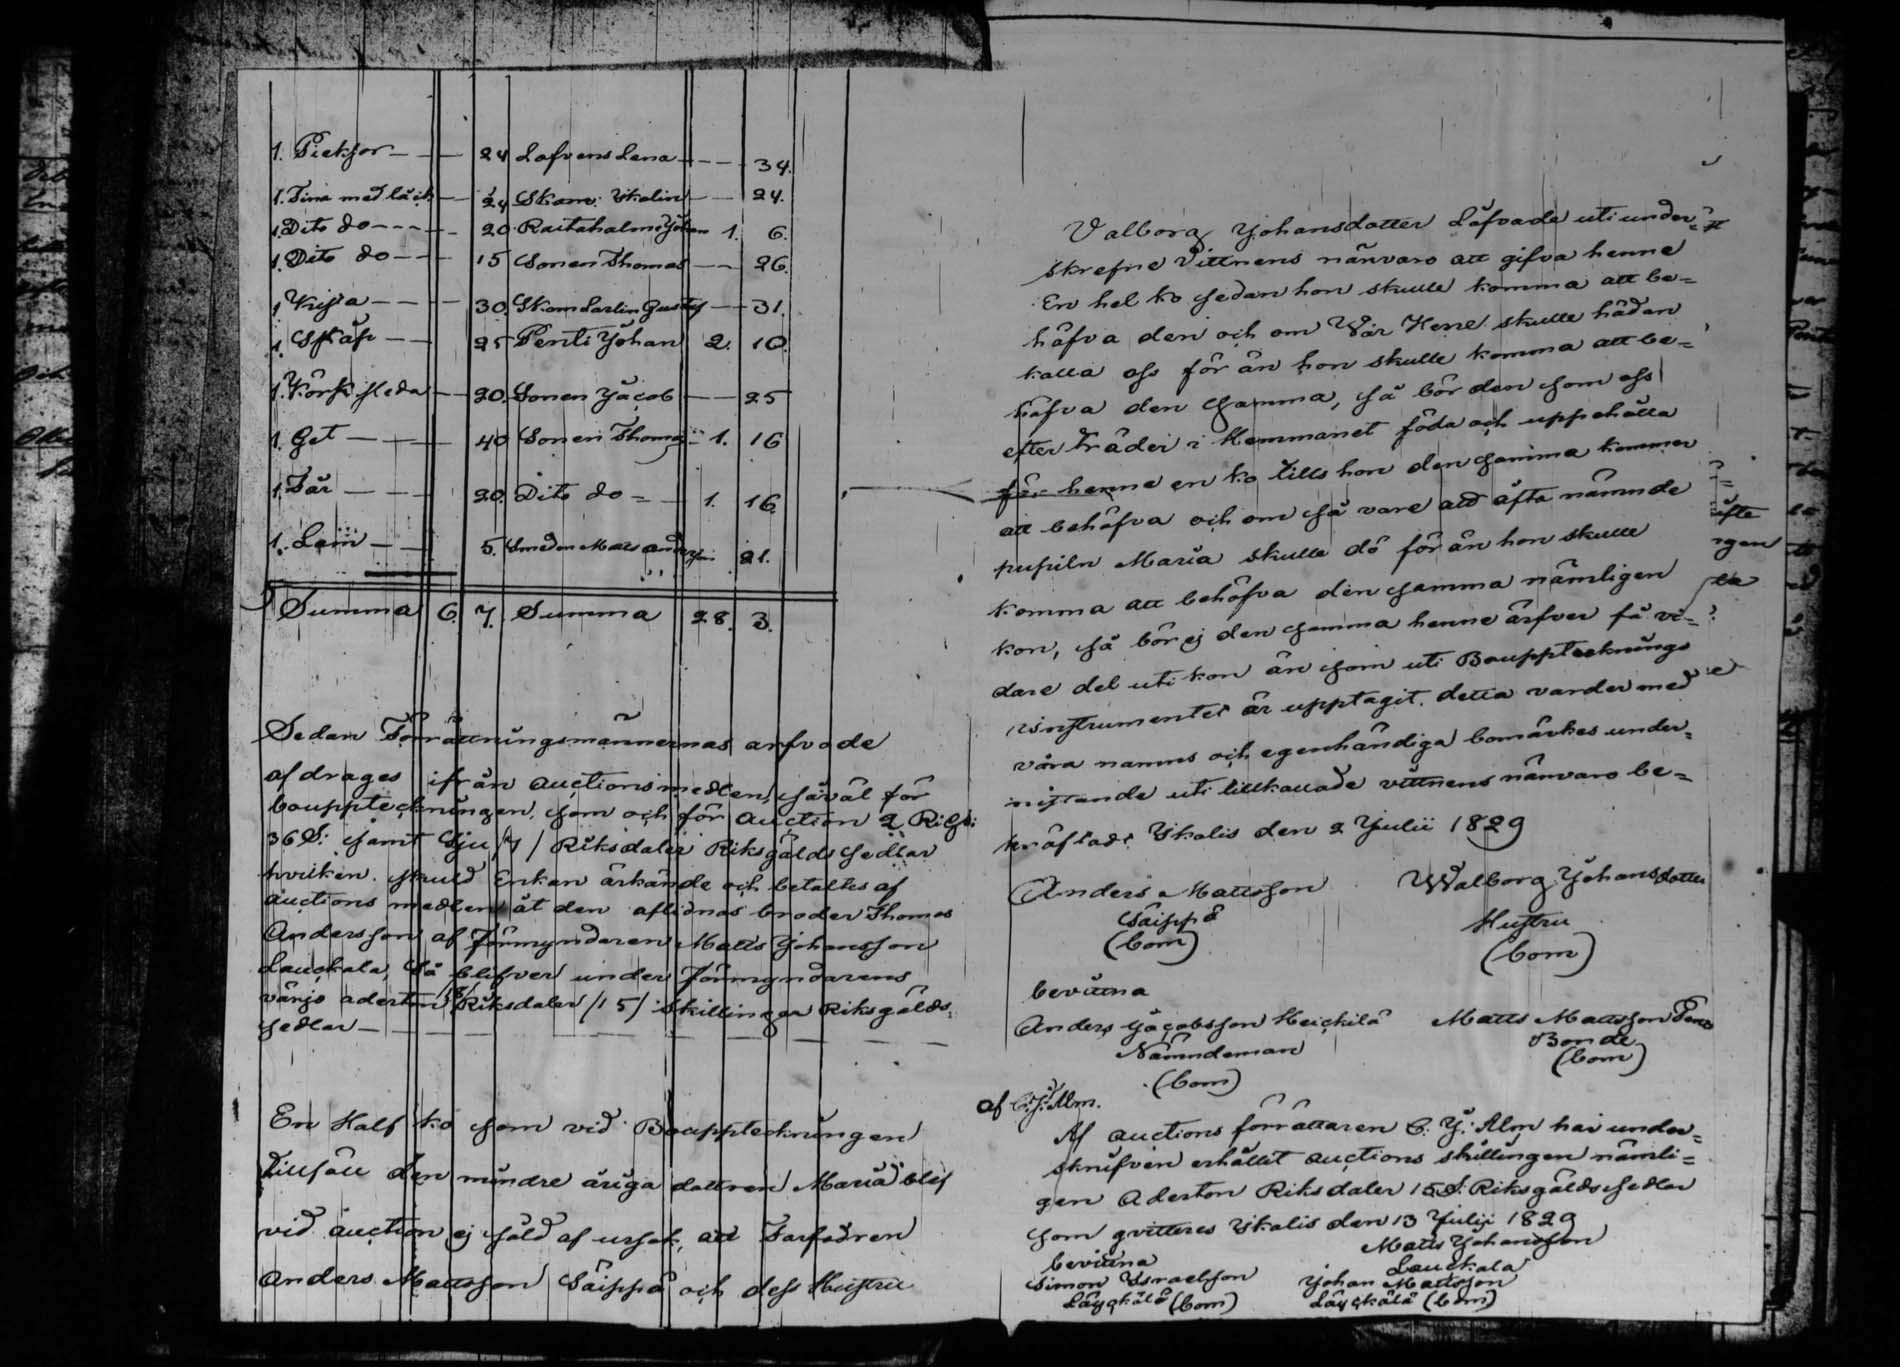 1. Piekjor — — 24 Lofvens Lena — — 34.
1. Tina med låck — 24 Skom. Skalin — — 24.
1. Dito do — — — 20 Raitahalme Johan 1. 6.
1. Dito do — — 15 Sonen Thomas — — 26.
1 Kista — — — 30. Skom Carlin Gustaf — 31.
1. Skåp — — 25 Pertti Johan 2. 10.
1. Körk sleda — 20. Sonen Jacob — — 25
1. Get — — — 40 Sonen Thomas 1. 16
1. Får — — — 20. Dito do — — 1. 16
1. Lam — — 5. Smeden Mats 21.
Summa 6. 7. Summa 28. 3.
Sedan Förrättningsmännernas arfvode
afdrages ifrån auctions medlen, såväl för
bouppteckningen, som och för auction 2 R:Gs:
36 S: samt Sju /7/ Riksdaler Riksgälds sedlar
hvilken skuld Enkan ärkände och betaltes af
auctions medlen åt den aflidnas broder Thomas
Andersson af Förmyndaren Matts Johansson
Lauckala, Så blifver under Förmyndarens
värjo aderton /18/ Riksdaler /15/ Skillingar Riksgälds
sedlar — — — — — — — —
En Half ko som vid Bouppteckningen
Tillföll den mindre åriga dottren Maria blef
vid auction ej såld af orsak, att Farfadren
Anders Mattsson Säippä och dess Hustru
Valborg Johansdotter Låfvade uti under=
skrefne Vittnens närvaro att gifva henne
En hel ko sedan hon skulle komma att be=
höfva den och om Wår Herre skulle hädan
kalla oss för än hon skulle komma att be=
höfva den samma, så bör den som oss
efter träder i Hemmanet föda och uppehålla
för henne en ko tills hon den samma kommer
att behöfva och om så vare att ofta nämnde
pupiln Maria skulle dö för än hon skulle
komma att behöfva den samma nämligen
kon, så bör ej den samma henne ärfver få vi=
dare del uti kon än som uti Boupptecknings
instrumentet är upptagit. detta varder med
våra namns och egenhändiga bomärkes under=
ristande uti tillkallade vittnens närvaro be=
kräftadt Ykalis den 2 Julii 1829
Anders Mattsson Walborg Johansdotter
Säippä Hustru
(bom) (bom)
bevittna
Anders Jacobsson Heickilä Matts Mattsson
Nämndeman Bonde
(bom) (bom)
af C. J. Alm.
Af auctions förrättaren C. J. Alm har under=
skrifven erhållit auctions skillingen nämli=
gen Aderton Riksdaler 15 S: Riksgälds sedlar
som qvitteres Ykalis den 13 Julii 1829
Matts Johansson
bevittna Lauckala
Simon Israelsson Johan Mattsson
Läyckälä (bom) Läyckälä (bom)